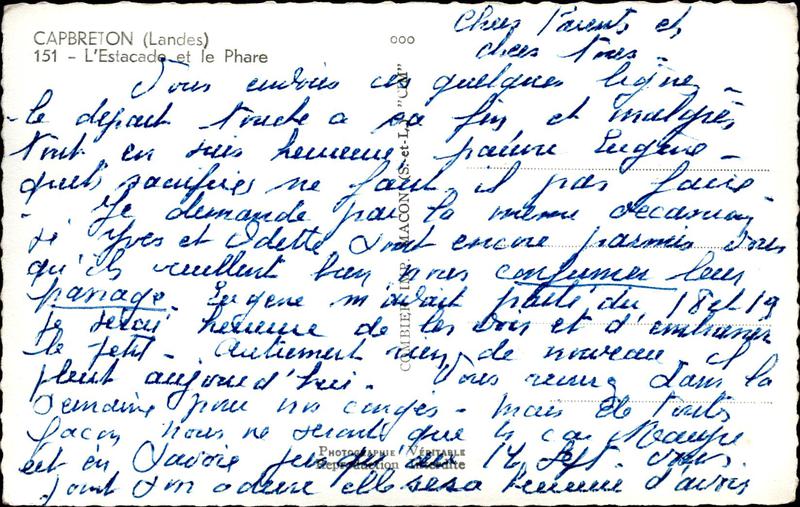 CAPBRETON (Landes)
151 - L'Estacade et le Phare
Chers Parents et
chers Tous -
Vous envoies ces quelques ligne -
le depart touche a sa fin et malgrés
tout en suis heureuse. pauvre Eugène -
quels sacrifices ne faut il pas faire -
- Je demande par la meme occasion
si Yves et Odette sont encore parmis vous
qu'ils veuillent bien nous confirmer leur
passage. Eugene m'avait parlé du 18 et 19
je serai heureuse de les voir et d'embrasser
le petit - Autrement rien de nouveau il
pleut aujourd'hui - Vous dans la
semaine pour nos congés - mais de toutes
façon nous ne serons que 4 car
est en Savoie jusqu'au 14 Sept. vous
dont son adresse elle sera heureuse d'avoir
COMBIER IMP. MACON (S.-et-L.) "CIM"
Photographie Véritable
Reproduction Interdite